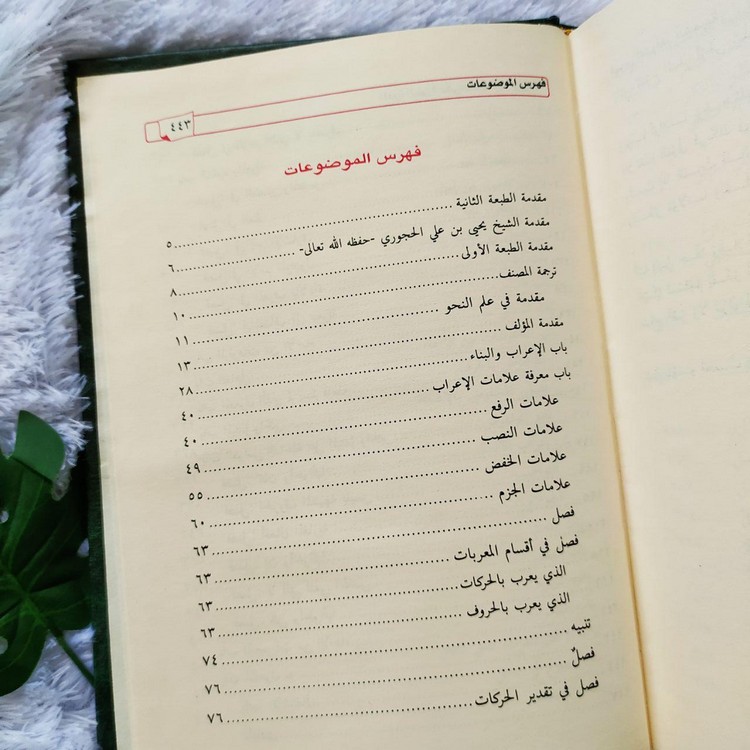 فهرس الموضوعات
٤٤٣
فهرس الموضوعات
مقدمة الطبعة الثانية ............ ٥
مقدمة الشيخ يحيى بن علي الحجوري -حفظه الله تعالى- ............ ٦
مقدمة الطبعة الأولى ............ ٨
ترجمة المصنف ............ ١٠
مقدمة في علم النحو ............ ١١
مقدمة المؤلف ............ ١٣
باب الإعراب والبناء ............ ٢٨
باب معرفة علامات الإعراب ............ ٤٠
علامات الرفع ............ ٤٠
علامات النصب ............ ٤٩
علامات الخفض ............ ٥٥
علامات الجزم ............ ٦٠
فصل ............ ٦٣
فصل في أقسام المعربات ............ ٦٣
الذي يعرب بالحركات ............ ٦٣
الذي يعرب بالحروف ............ ٦٣
تنبيه ............ ٧٤
فصلٌ ............ ٧٦
فصل في تقدير الحركات ............ ٧٦